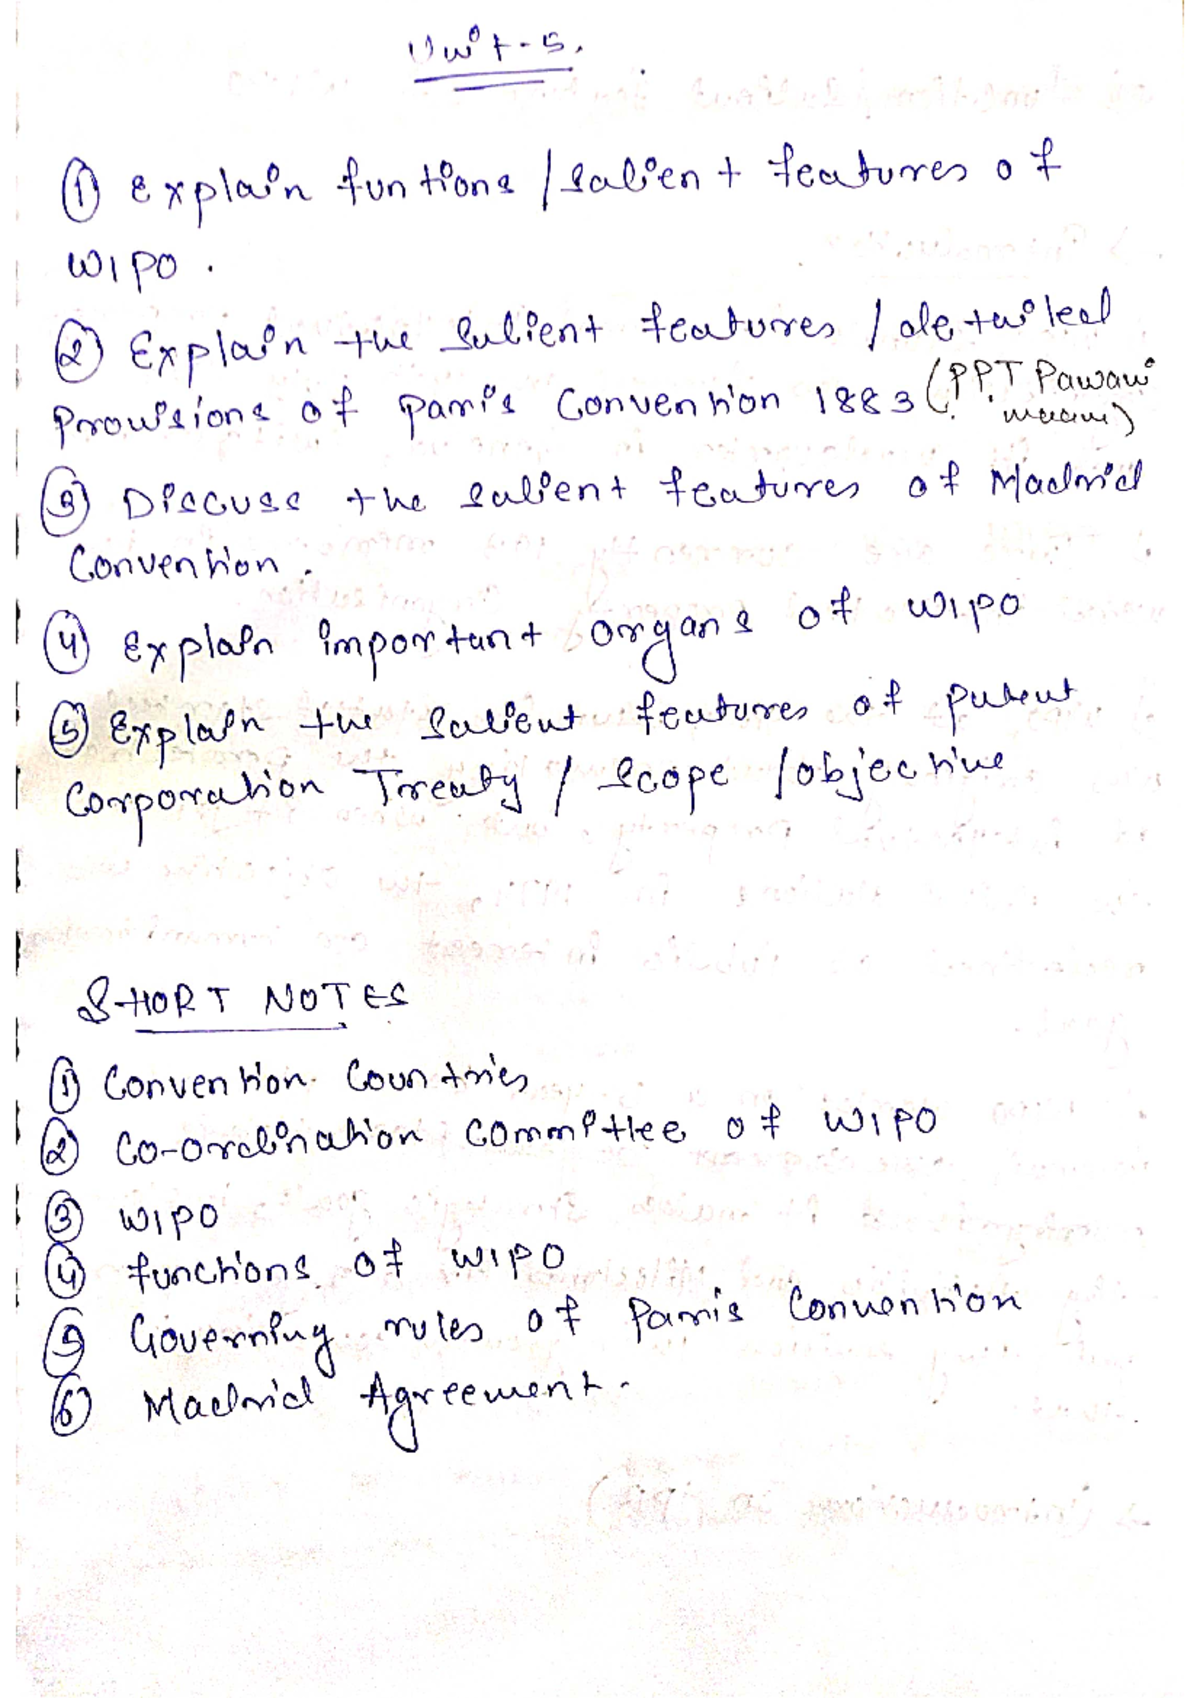 Unit-5.
① Explain funtions / salient features of
WIPO.
② Explain the Salient features / detailed
Provisions of Paris Convention 1883 (PPT Pawani
maam)
③ Discuss the salient features of Madrid
Convention.
④ Explain important organs of WIPO
⑤ Explain the Salient features of patent
Corporation Treaty / Scope / objective
SHORT NOTES
① Convention Countries
② Co-ordination committee of WIPO
③ WIPO
④ functions of WIPO
⑤ Governing rules of Paris Convention
⑥ Madrid Agreement.